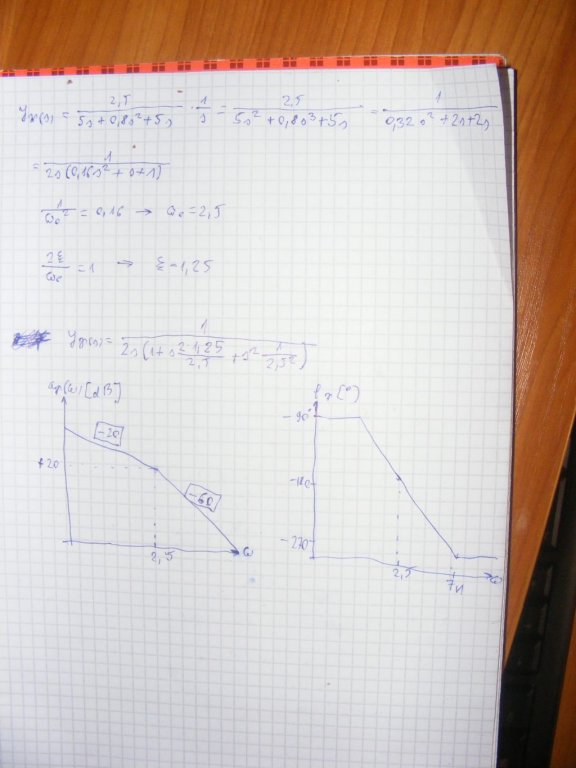 yr(s) = 2,5 / (5s + 0,8s² + 5s) · 1/s = 2,5 / (5s² + 0,8s³ + 5s) = 1 / (0,32s² + 2s + 2s)
= 1 / (2s(0,16s² + s + 1))
1/ω₀² = 0,16 → ω₀ = 2,5
2ξ/ω₀ = 1 → ξ = 1,25
yr(s) = 1 / (2s(1 + s 2·1,25/2,5 + s² 1/2,5²))
ar(ω) [dB]
-20
+20
-60
2,5
ω
[°]
-90°
-180
-270
2,5
ω